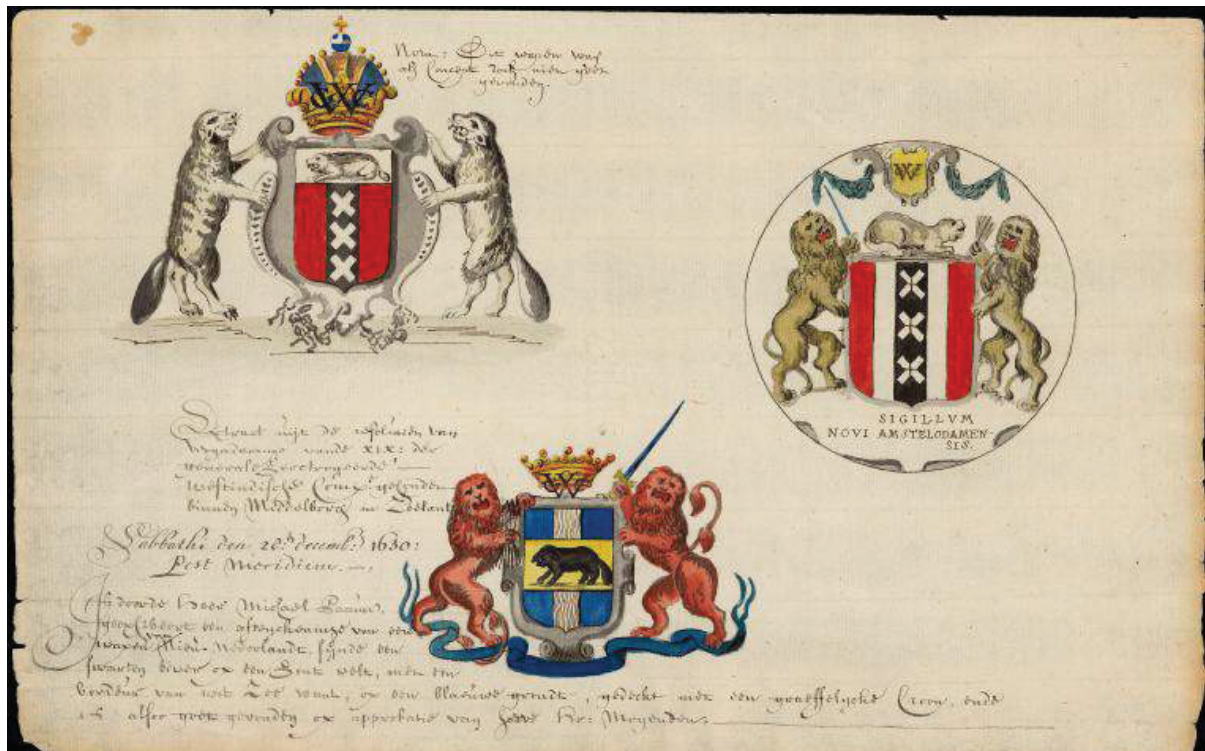 Nota: Dit wapen was
als Concept doch niet goet
gevonden.
GWC
W
SIGILLVM
NOVI AMSTELODAMEN-
SIS.
Extract uijt de resolutien van
vergaderinge vande XIX: der
generale Geoctroyeerde
Westindische Comp: gehouden
binnen Middelborch in Zeelant
Sabbathi den 28 decemb: 1630:
Post Meridiem.
Is door de Heer Michael Paauw
van een
wapen van Nieu Nederlandt, sijnde een
swarten bever op een gout velt, met een
van wit, op een blauwe grondt, gedeckt met een graeffelycke Croon, ende
is alsoo goet gevonden op approbatie van haere Ho: Mogenden